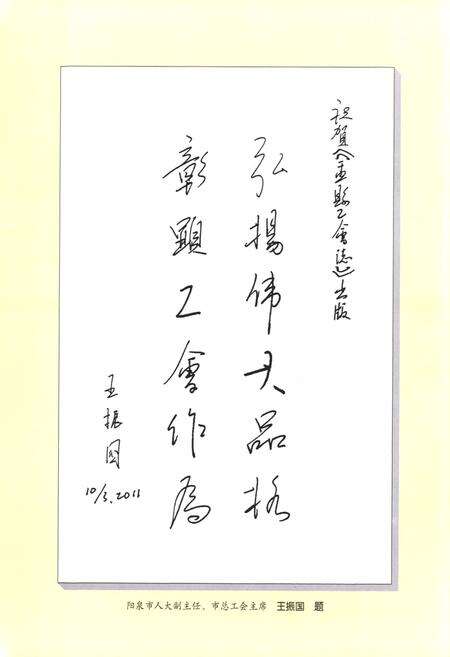 祝賀《盂縣工會誌》出版
弘揚伟大品格
彰顯工會作為
王振國
10/3.2011
阳泉市人大副主任、市总工会主席 王振国 题